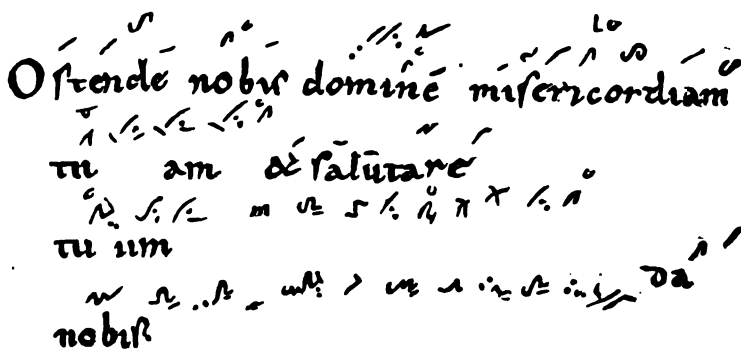 Ostende nobis domine misericordiam
tu am & salutare
tu um
da
nobis